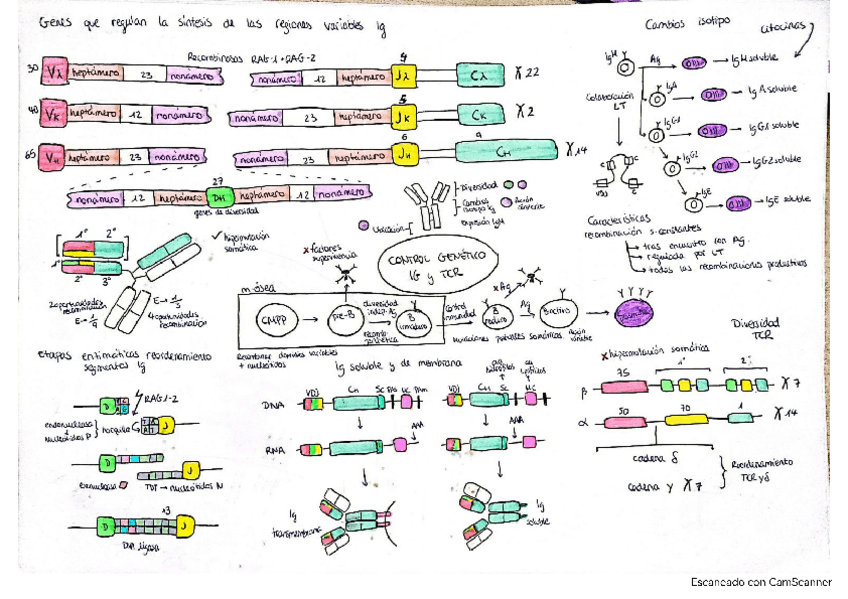 Genes que regulan la síntesis de las regiones variables Ig
Recombinasas RAG-1 + RAG-2
30 Vλ heptámero 23 nonámero nonámero 12 heptámero 4 Jλ Cλ X 22
40 Vκ heptámero 12 nonámero nonámero 23 heptámero 5 Jκ Cκ X 2
65 VH heptámero 23 nonámero nonámero 23 heptámero 6 JH 9 CH X 14
nonámero 12 heptámero 27 DH heptámero 12 nonámero
genes de diversidad
Cambios isotipo
citocinas
IgM Ag IgM soluble
Colaboración LT
IgA IgA soluble
IgG1 IgG1 soluble
IgG2 IgG2 soluble
IgE IgE soluble
Características
recombinación s. constantes
tras encuentro con Ag.
regulada por LT
todas las recombinaciones productivas
Diversidad
Cambios isotipo Ig
1° 2°
1°
2° 3°
✓ hipermutación somática
2 oportunidades recombinación
4 oportunidades recombinación
CONTROL GENÉTICO
IG y TCR
x factores supervivencia
m. ósea
CMPP
pre-B
diversidad indep. Ag
B inmaduro
B maduro
x Ag
Ag
B activo
Mutaciones puntuales somáticas
+ nucleótidos
Etapas enzimáticas reordenamiento segmentos Ig
D RAG 1-2
endonucleasas + nucleótidos P
horquilla
J
D
J
exonucleasa
TDT → nucleótidos N
D J
DNA ligasa
Ig soluble y de membrana
VDJ CH SC MC
DNA
AAA
RNA
Ig transmembrana
VDJ CH SC MC
AAA
Ig soluble
Diversidad TCR
x hipermutación somática
75 1° 2°
β X 7
50 70 1
α X 14
cadena δ
cadena γ X 7
Reordenamiento TCR γδ
Escaneado con CamScanner